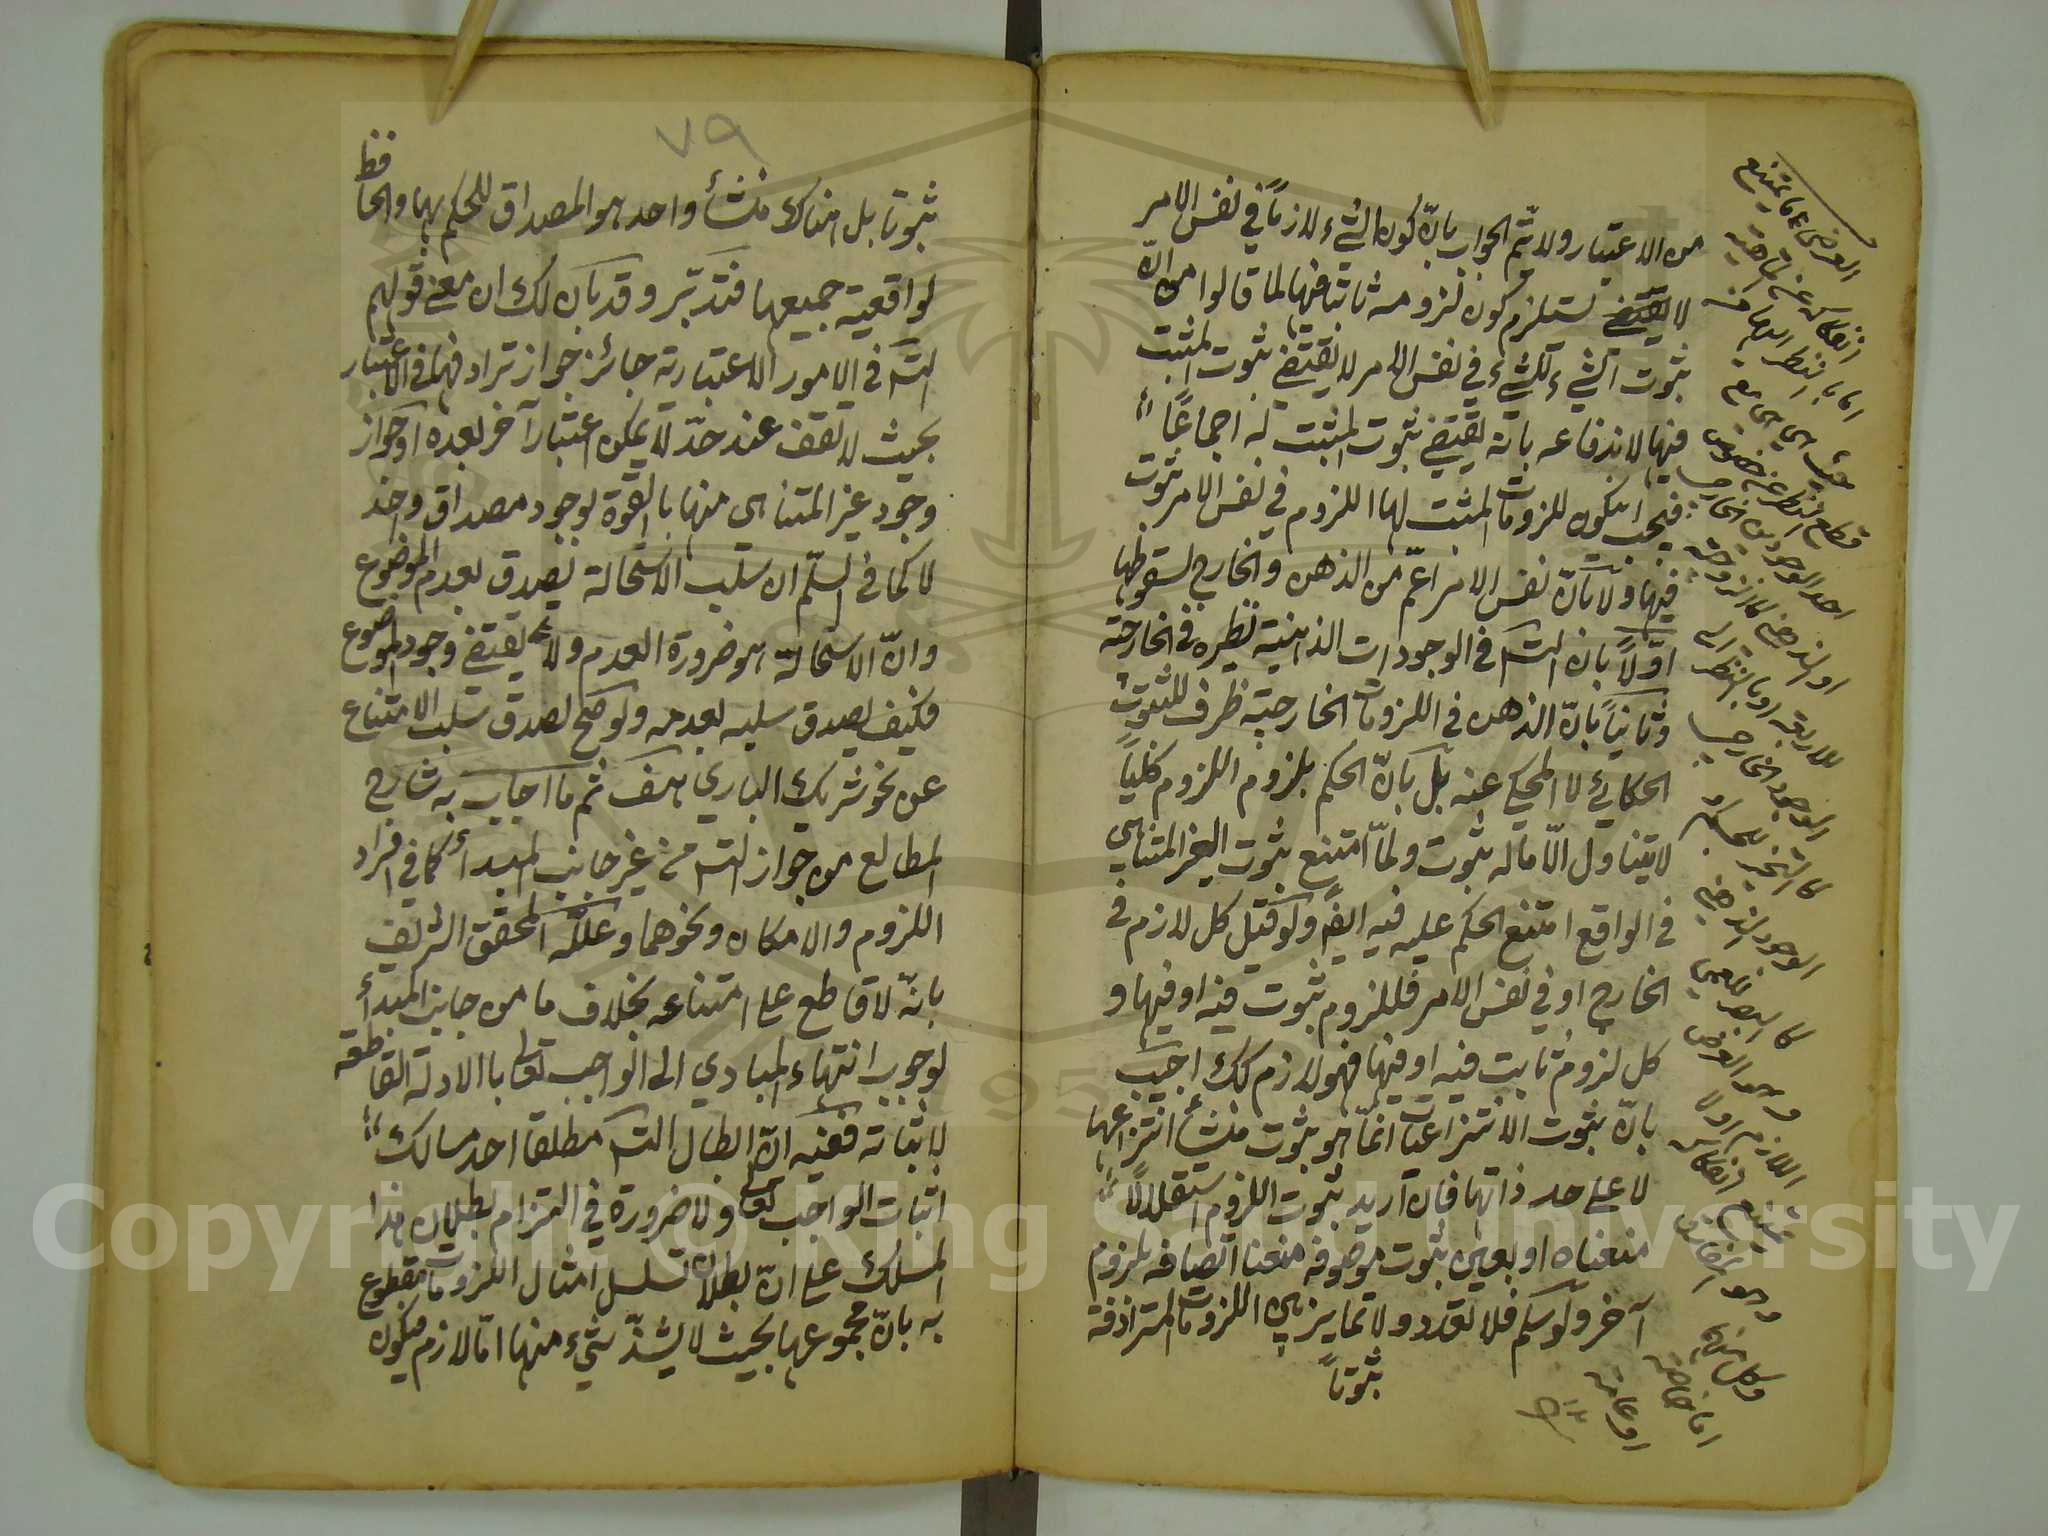 من الاعتبار ولا يتم الجواب بانّ كون الشيء لازماً في نفس الامر
لا يقتضي تستلزم كون لزومه ثابتا فيها لما قالوا من ان
ثبوت الشيء للشيء في نفس الامر لا يقتضي ثبوت المثبت
فيها لاندفاعه بانه يقتضي ثبوت المثبت له اجماعاً
فيجب ان يكون للزومات المثبت لها اللزوم في نفس الامر ثبوت
فيها ولا بانّ نفس الامر اعمّ من الذهن والخارج لسقوطها
اوّلاً بان التسـ في الوجودات الذهنية نظيره في الخارجية
وثانياً بانّ الذهن في اللزومات الخارجية ظرف للثبوت
الحكائي لا المحكي عنه بل بانّ الحكم بلزوم اللزوم كلياً
لا يتناول الّا ما له ثبوت ولمّا امتنع ثبوت الغير المتناهي
في الواقع امتنع الحكم عليه فيه ايضً ولو قيل كل لازم في
الخارج او في نفس الامر فللزوم ثبوت فيه او فيها و
كل لزوم ثابت فيه او فيها فهو لازم كك اجيب
بانّ ثبوت الانتزاعيات انمّا هو ثبوت منشأ انتزاعها
لا على حد ذاتها فان اريد ثبوت اللزوم استقلالاً
منعناه او بعين ثبوت موصوفه منعنا اتصافه بلزوم
آخر ولو سلم فلا تعدد ولا تمايز بين اللزومات المترادفة
ثبوتاً
العرض ما يمتنع
انفكاكه عن الماهية
اما بالنظر اليها من
حيث هي هي مع
قطع النظر عن خصوص
احد الوجودين الخارجي
او الذهني كالزوجية
للاربعة او بالنظر الى
الوجود الخارجي
كالتحيز للجسم او
الوجود الذهني
وهو العرض
اللازم اولا
يمتنع انفكاكه
وهو المفارق
وكل منهما
اما خاصة
او عامة
٧٩
ثبوتا بل هناك منشأ واحد هو المصداق للحكم بها والحافظ
لواقعية جميعها فتدبّر وقد بان لك ان معنى قولهم
التسـ في الامور الاعتبارية جائز جواز ترادفها في الاعتبار
بحيث لا تقف عند حدّ لا يمكن اعتبار آخر بعده او جواز
وجود غير المتناهي منها بالقوة لوجود مصداق واحد
لا كما في السلّم ان سلب الاستحالة يصدق بعدم الموضوع
وانّ الاستحالة هو ضرورة العدم ولا يقتضي وجود الموضوع
فكيف يصدق سلبه بعدمه ولو صح لصدق سلب الامتناع
عن نحو شريك الباري هف ثم ما اجاب به شارح
المطالع من جواز التسـ من غير جانب المبدأ كما في افراد
اللزوم والامكان ونحوهما وعلله المحقق الشريف
بانّه لا قاطع على امتناعه بخلاف ما من جانب المبدأ
لوجوب انتهاء المبادي الى الواجب تعالى بالادلة القاطعة
لاثباته ففيه انّ ابطال التسـ مطلقا احد مسالك
اثبات الواجب تعالى ولا ضرورة في التزام بطلان هذا
المسلك على انّ بطلان تسلسل امثال اللزومات مقطوع
به بانّ مجموعها بحيث لا يشذّ شيء منها امّا لازم فيكون
Copyright © King Saud University